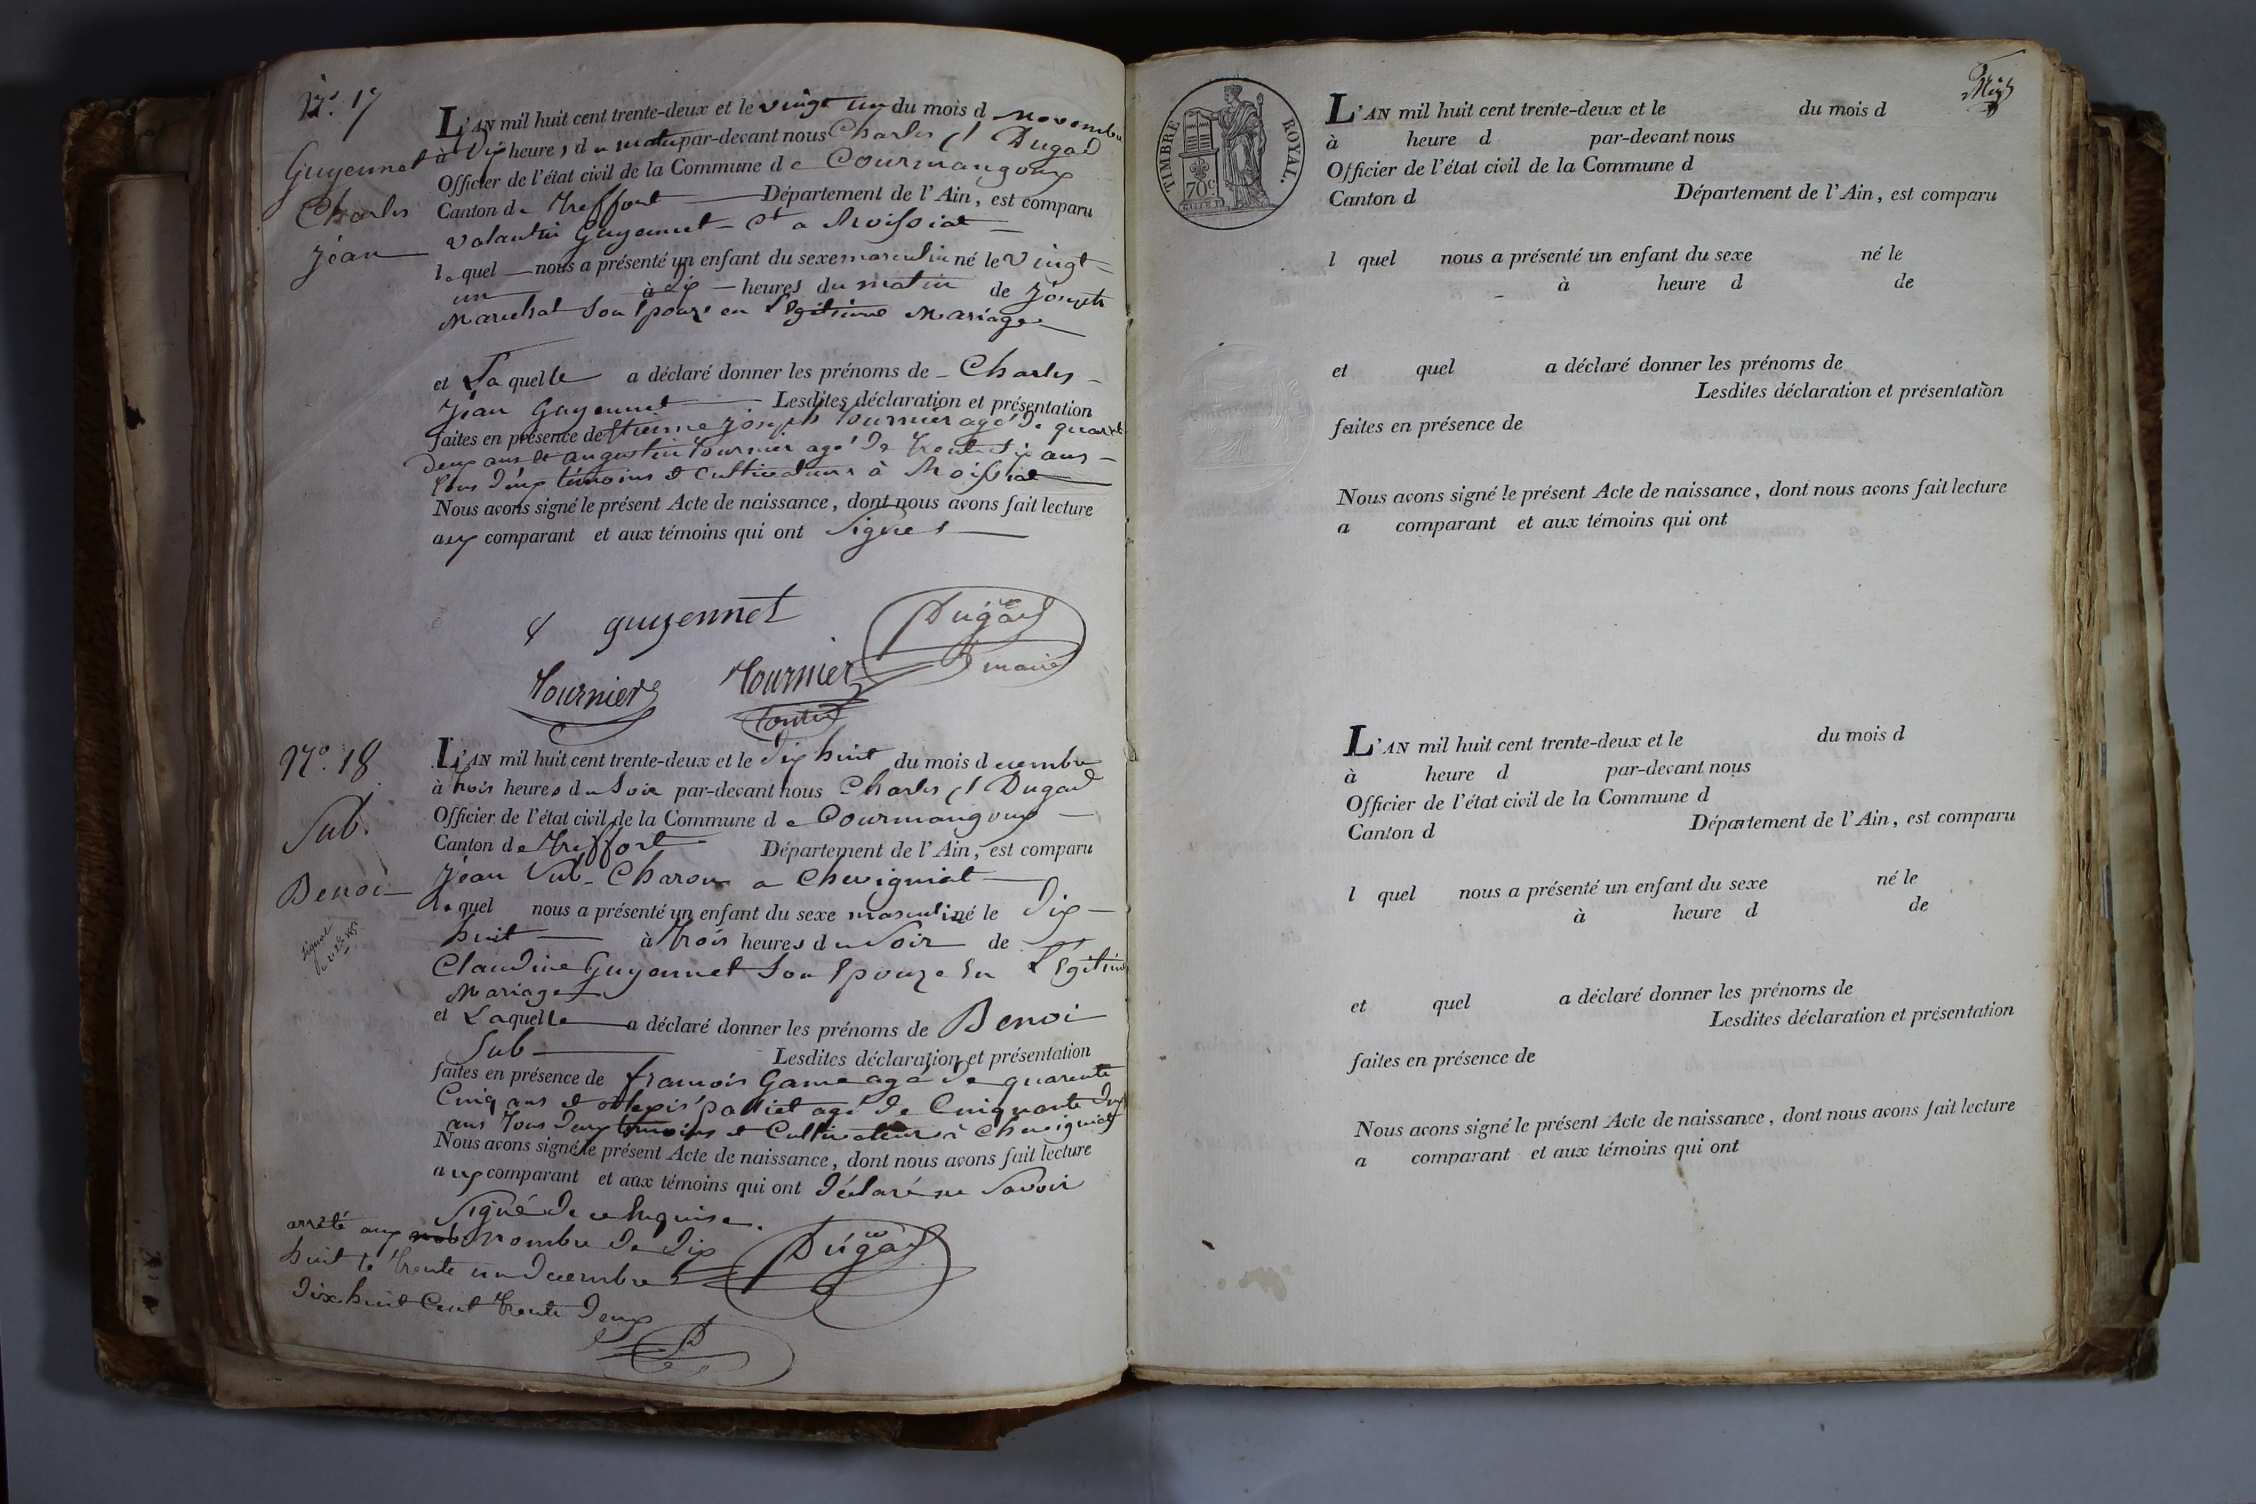 N.º 17
Guyennet
Charles
Jean
L'AN mil huit cent trente-deux et le vingt un du mois d novembre
à dix heures du matin par-devant nous Charles Dugad
Officier de l'état civil de la Commune de Courmangoux
Canton de Treffort Département de l'Ain, est comparu
valantin Guyennet Ct a Moissiat
lequel nous a présenté un enfant du sexe masculin né le vingt
un à dix heures du matin de Joseph
Marechat son Epouze en Légitime Mariage
et Laquelle a déclaré donner les prénoms de Charles
Jean Guyennet Lesdites déclaration et présentation
faites en présence de Etienne Joseph Tournier agé de quarante
deux ans et augustin Tournier agé de trente six ans
tous deux témoins et cultivateurs à Moissiat
Nous avons signé le présent Acte de naissance, dont nous avons fait lecture
aux comparant et aux témoins qui ont Signés
guyennet
Dugad
maire
Tournier
Tournier
N.º 18
Sub.
Benoi
L'AN mil huit cent trente-deux et le dix huit du mois decembre
à trois heures du Soir par-devant nous Charles Dugad
Officier de l'état civil de la Commune de Courmangoux
Canton de Treffort Département de l'Ain, est comparu
Jean Sub Charon a Chevigniat
lequel nous a présenté un enfant du sexe masculin né le dix
huit à trois heures du Soir de
Claudine Guyennet Son Epouze En Légitime
Mariage
et Laquelle a déclaré donner les prénoms de Benoi
Sub Lesdites déclaration et présentation
faites en présence de francois Game agé de quarente
Cinq ans et alexis paviet agé de Cinquante deux
ans tous deux temoins et Cultivateurs à Chevigniat
Nous avons signé le présent Acte de naissance, dont nous avons fait lecture
aux comparant et aux témoins qui ont déclaré ne Savoir
Signé de ce Requise.
arrêté aux nombre de dix
huit le trente un decembre
dix huit Cent trente deux
Dugad
TIMBRE ROYAL.
70 c.
L'AN mil huit cent trente-deux et le du mois d
à heure d par-devant nous
Officier de l'état civil de la Commune d
Canton d Département de l'Ain, est comparu
l quel nous a présenté un enfant du sexe né le
à heure d de
et quel a déclaré donner les prénoms de
Lesdites déclaration et présentation
faites en présence de
Nous avons signé le présent Acte de naissance, dont nous avons fait lecture
a comparant et aux témoins qui ont
L'AN mil huit cent trente-deux et le du mois d
à heure d par-devant nous
Officier de l'état civil de la Commune d
Canton d Département de l'Ain, est comparu
l quel nous a présenté un enfant du sexe né le
à heure d de
et quel a déclaré donner les prénoms de
Lesdites déclaration et présentation
faites en présence de
Nous avons signé le présent Acte de naissance, dont nous avons fait lecture
a comparant et aux témoins qui ont